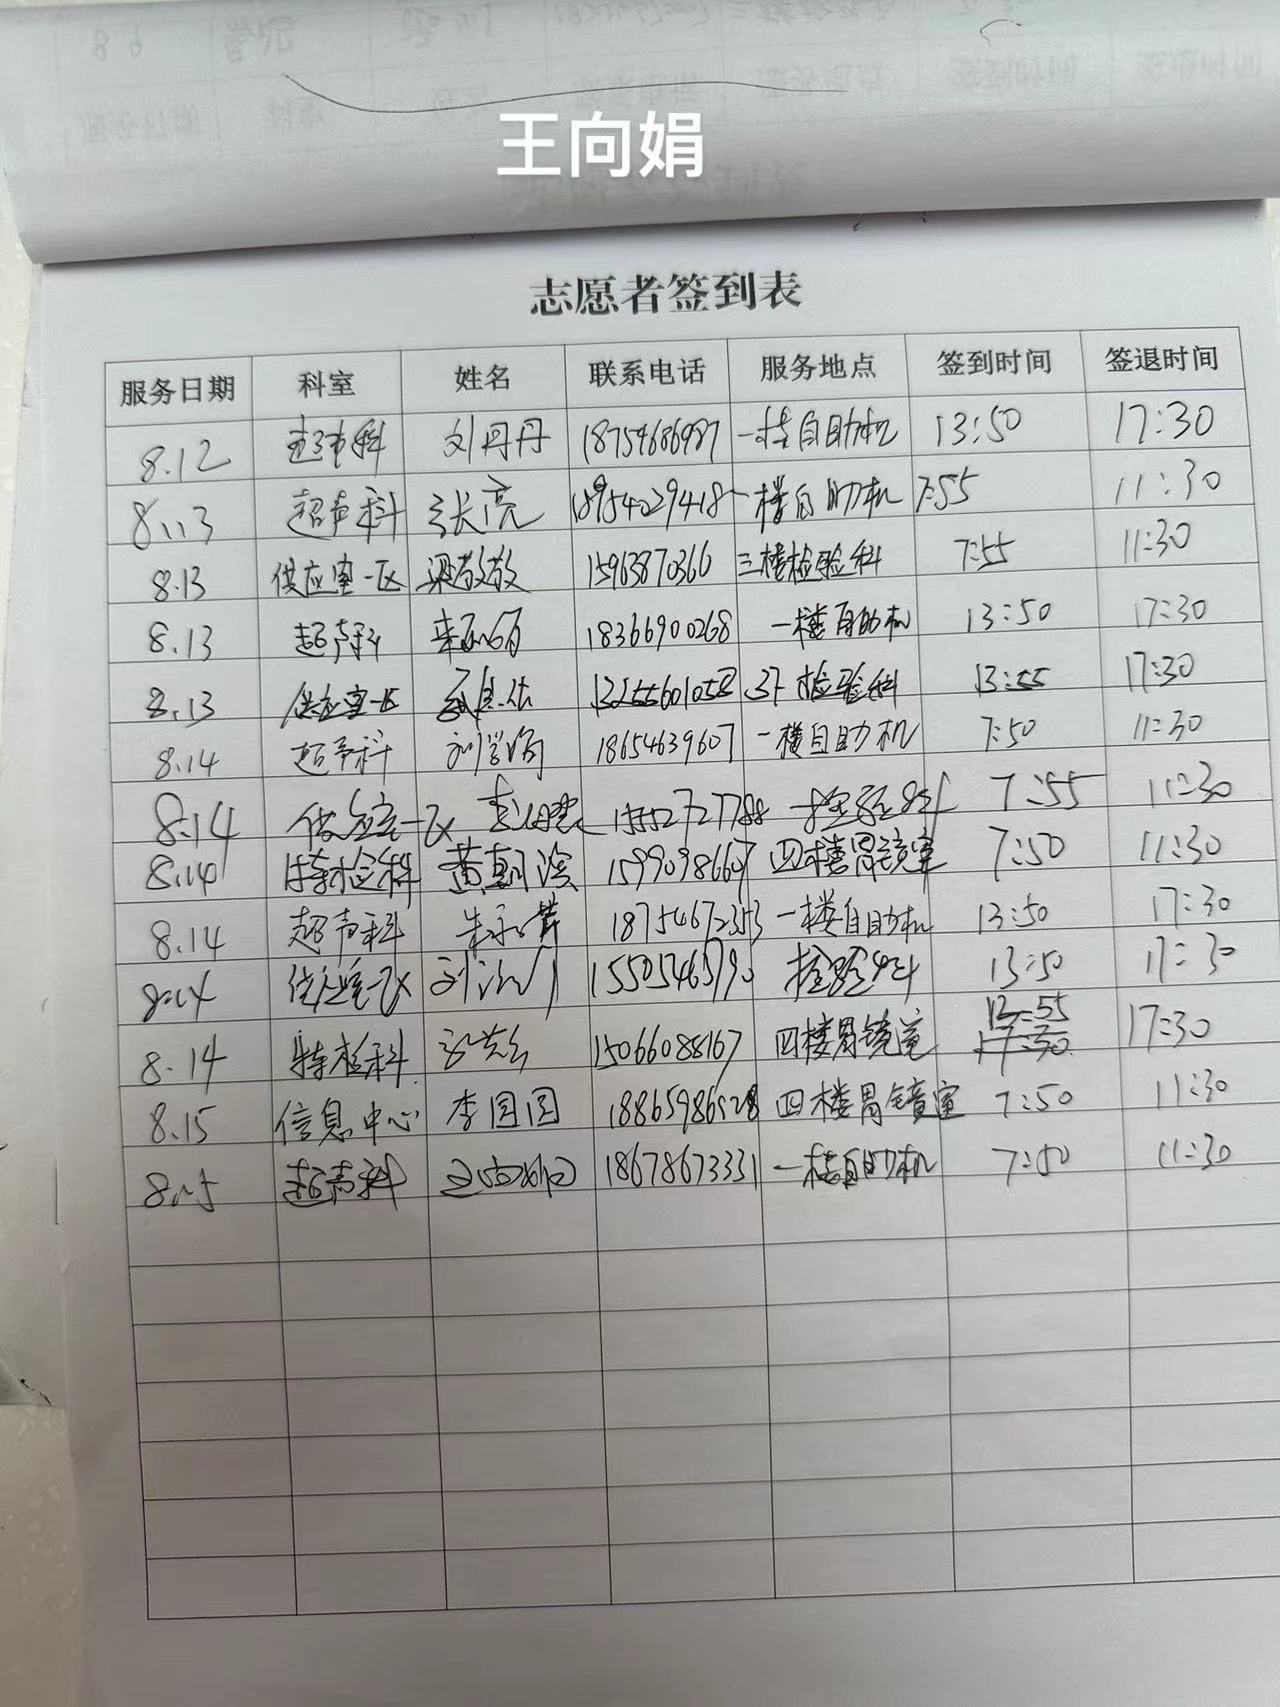 王向娟
志愿者签到表
服务日期 科室 姓名 联系电话 服务地点 签到时间 签退时间
8.12 超声科 刘丹丹 18754686987 一楼自助机 13:50 17:30
8.13 超声科 张亮 18954029418 一楼自助机 7:55 11:30
8.13 供应室一区 梁敬敬 15963870366 三楼检验科 7:55 11:30
8.13 超声科 18366900268 一楼自助机 13:50 17:30
8.13 供应室一区 13255601058 3F检验科 13:55 17:30
8.14 超声科 18654639607 一楼自助机 7:50 11:30
8.14 供应室一区 15552727788 检验科 7:55 11:30
8.14 特检科 黄朝滨 15990986607 四楼胃镜室 7:50 11:30
8.14 超声科 朱永芹 18754672353 一楼自助机 13:50 17:30
8.14 供应室一区 15505465790 检验科 13:50 17:30
8.14 特检科 15066088167 四楼胃镜室 13:55 17:30
8.15 信息中心 李团团 18865986528 四楼胃镜室 7:50 11:30
8.15 超声科 18678673331 一楼自助机 7:50 11:30